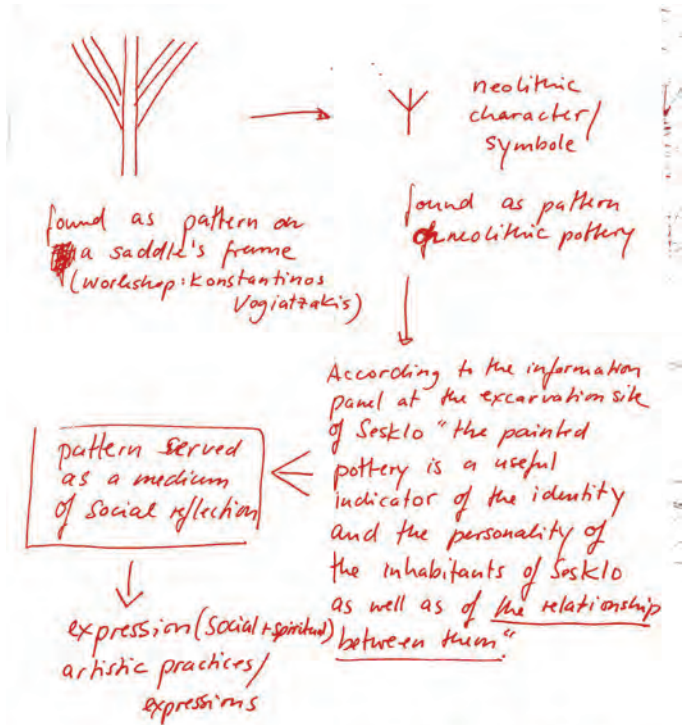 neolithic
character/
symbole
found as pattern on
a saddle's frame
(workshop: Konstantinos
Vogiatzakis)
found as pattern
on neolithic pottery
According to the information
panel at the excarvation site
of Sesklo "the painted
pottery is a useful
indicator of the identity
and the personality of
the inhabitants of Sesklo
as well as of the relationship
between them".
pattern served
as a medium
of social reflection
expression (social + spiritual)
artistic practices/
expressions